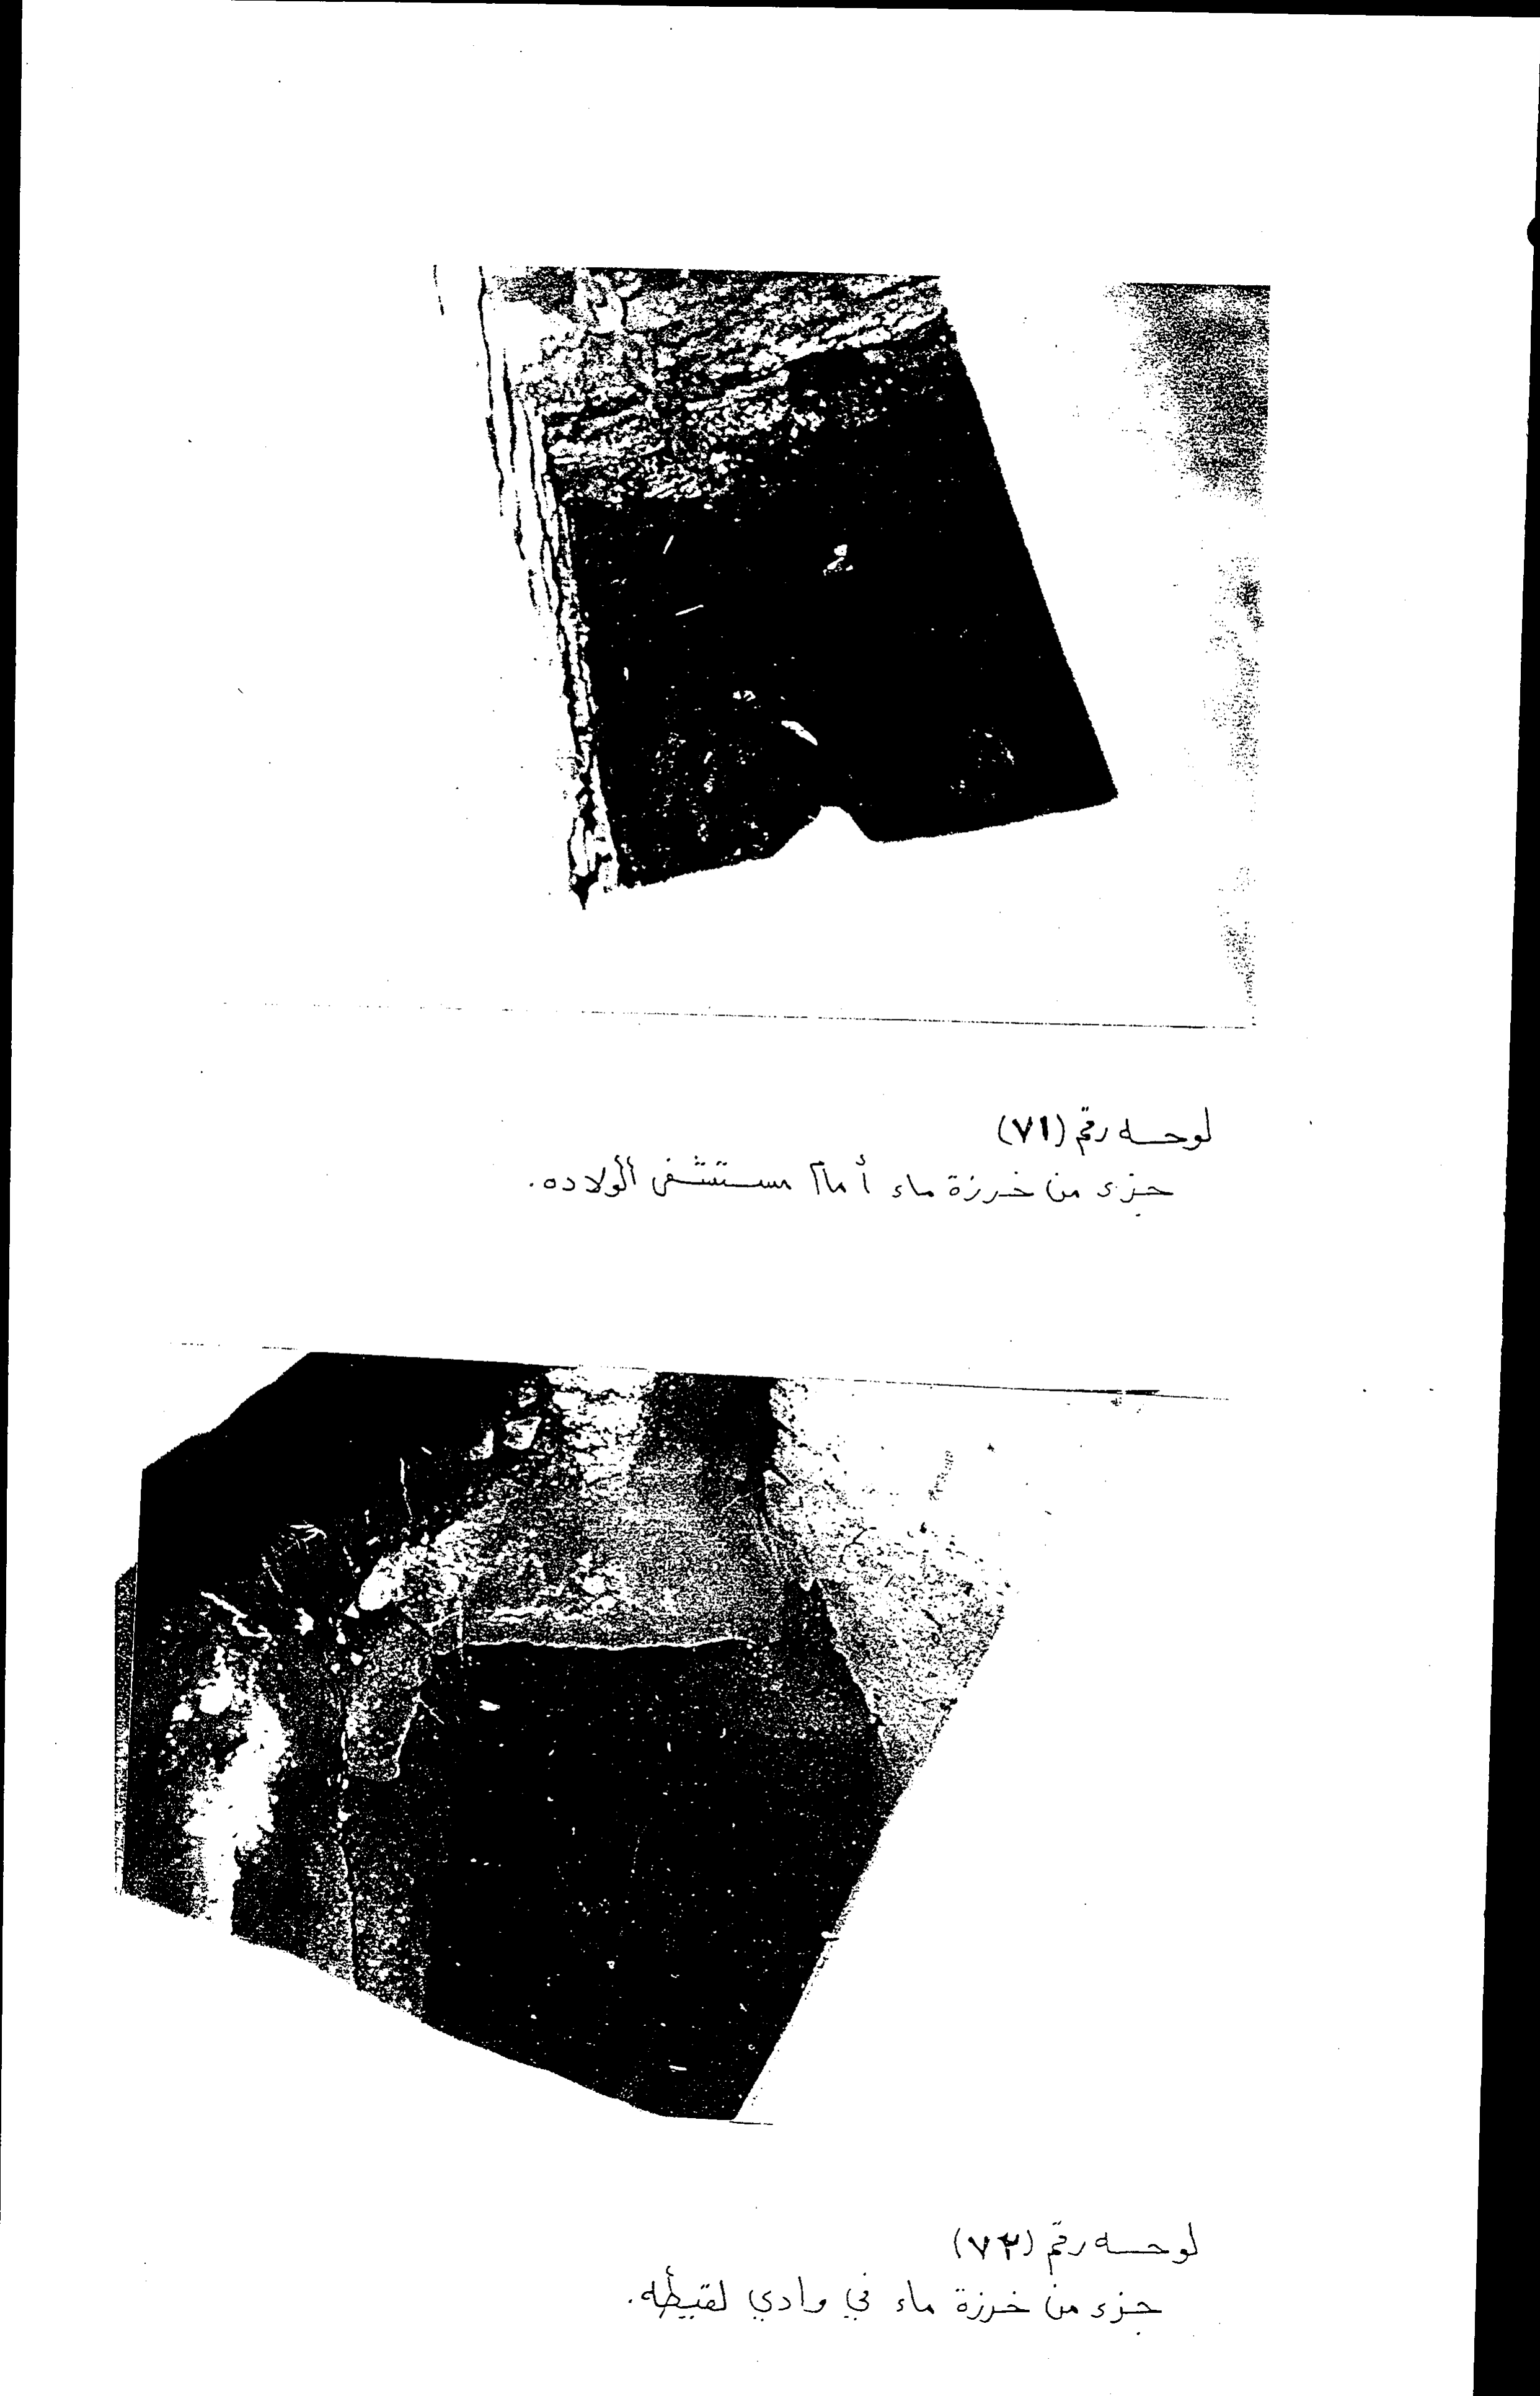 لوحه رقم (٧١)
جزء من خرزة ماء أمام مستشفى الولاده.
لوحه رقم (٧٢)
جزء من خرزة ماء في وادي لقيطه.